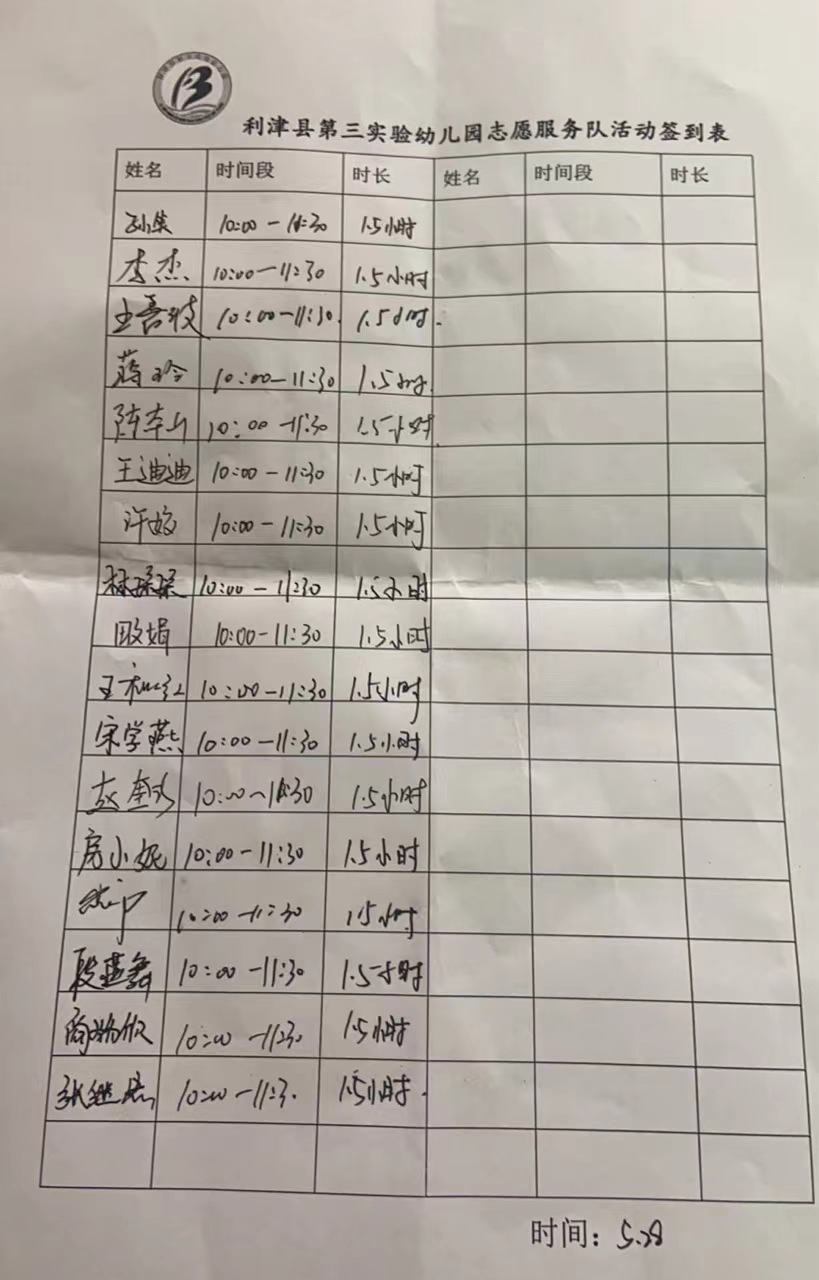 利津县第三实验幼儿园志愿服务队活动签到表
姓名 时间段 时长 姓名 时间段 时长
10:00-11:30 1.5小时
李杰 10:00-11:30 1.5小时
10:00-11:30. 1.5小时.
蒋玲 10:00-11:30 1.5小时.
10:00-11:30 1.5小时
王迪迪 10:00-11:30 1.5小时
许姣 10:00-11:30 1.5小时
10:00-11:30 1.5小时
娟 10:00-11:30 1.5小时
10:00-11:30 1.5小时
宋学燕 10:00-11:30 1.5小时
赵 10:00~11:30 1.5小时
房小妮 10:00-11:30 1.5小时
10:00-11:30 1.5小时
段 10:00-11:30 1.5小时
商 10:00-11:30 1.5小时
张继 10:00-11:3. 1.5小时.
时间: 5.28